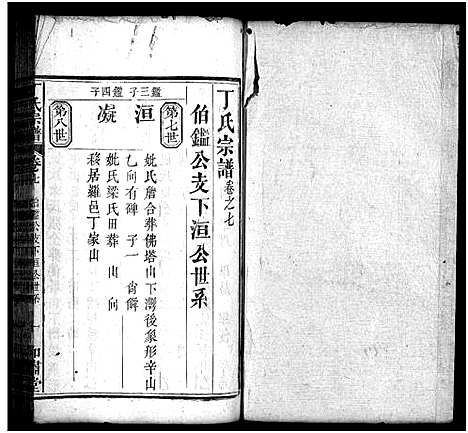 丁氏宗譜 卷之七
伯鑑公支下洹公世系
第七世
鑑三子 洹
妣氏詹合葬佛塔山下灣後象形辛山
乙向有碑 子一
鑑四子 凝
妣氏梁氏田葬 山 向
移居羅邑丁家山
第八世
丁氏宗譜 卷七 伯鑑公支下洹公世系 一